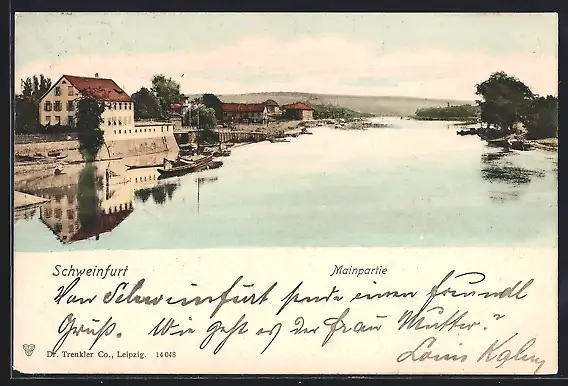 Schweinfurt Mainpartie
Von Schweinfurt sende einen freundl
Gruß. Wie geht es der frau Mutter?
Louis
Dr. Trenkler Co., Leipzig. 14048